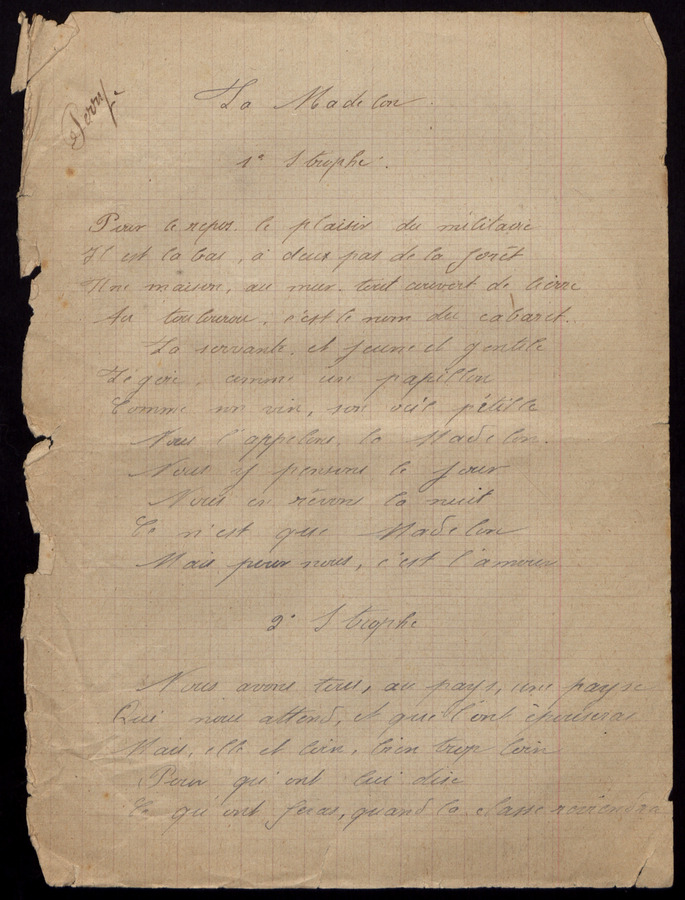 La Madelon.
1e Strophe.
Pour le repos. le plaisir du militaire
Il est la bas, à deux pas de la forêt
Une maison, au mur. tout couvert de lierre
Au toulourou, c'est le nom du cabaret.
La servante. et jeune et gentille
Légère, comme un papillon
Comme son vin, son œil pétille
Nous l'appelons. la Madelon.
Nous y pensons le jour
Nous en rêvons la nuit
Ce n'est que Madelon
Mais pour nous, c'est l'amour
2e Strophe
Nous avons tous, au pays, une payse
Qui nous attend, et que l'ont épouseras
Mais, elle et loin, bien trop loin
Pour qu'ont lui dise
Ce qu'ont feras, quand la classe reviendra